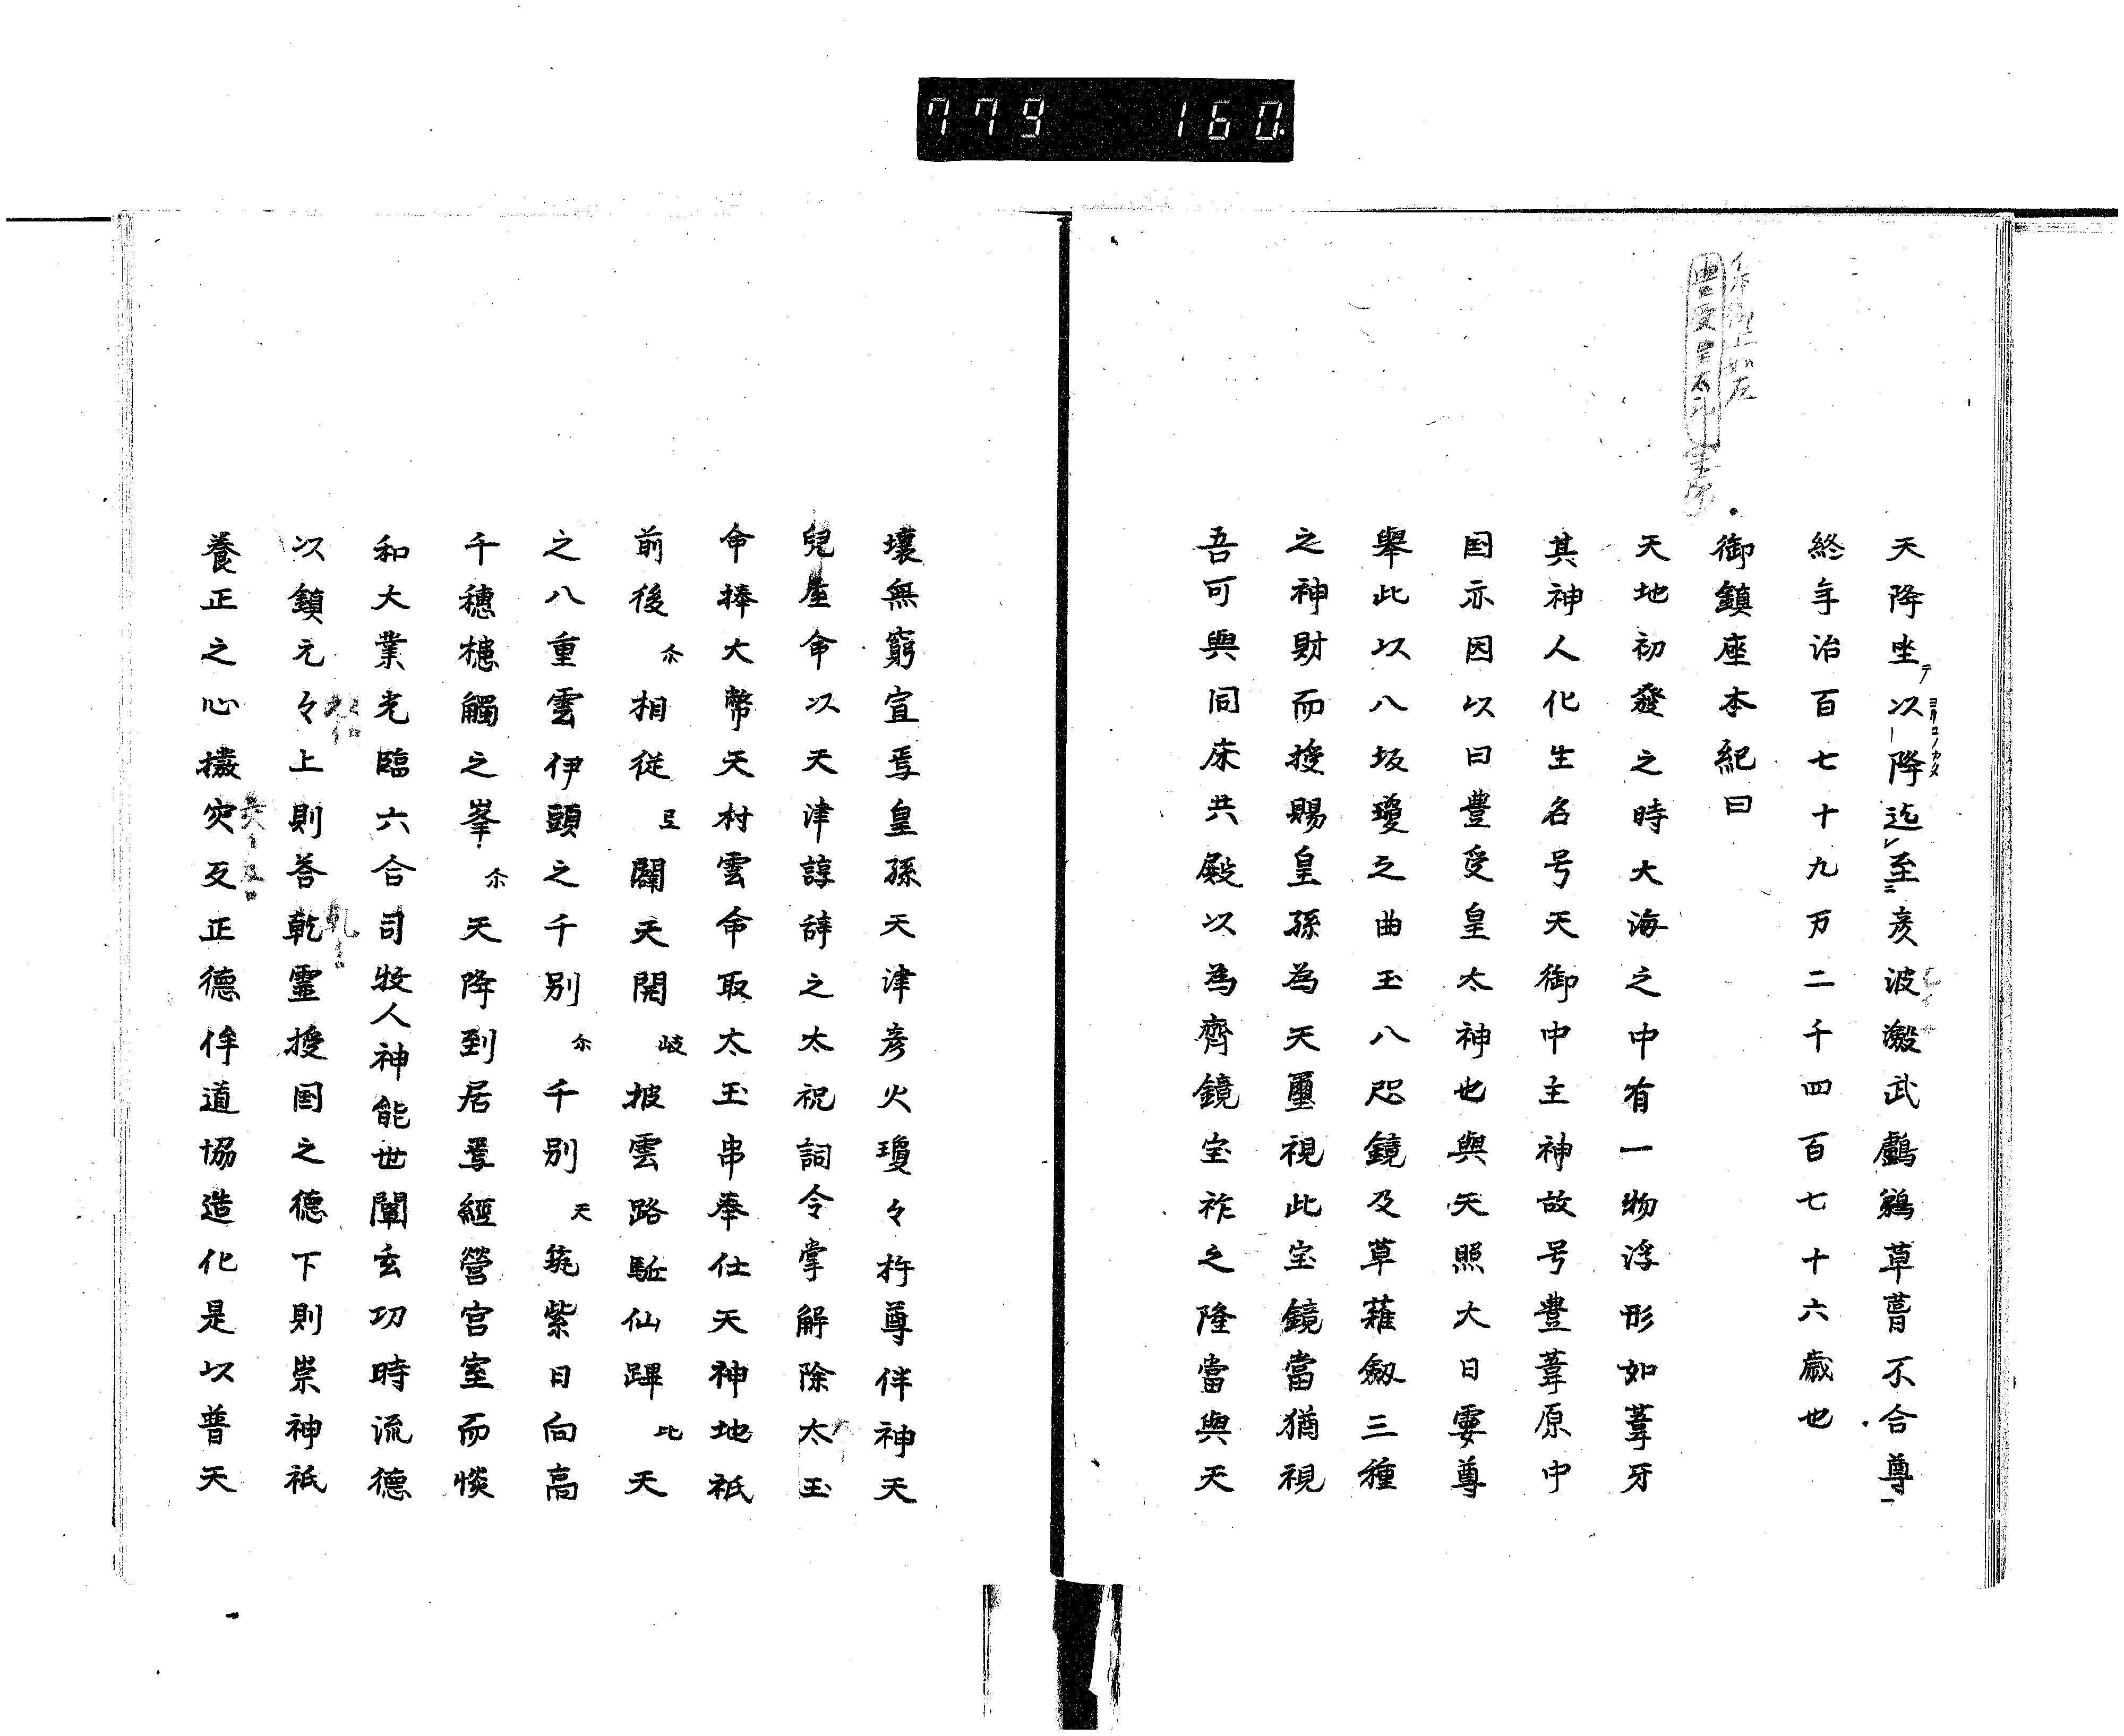 779 160
天降坐テ以降迄至彦波瀲武鸕鷀草葺不合尊
終年治百七十九万二千四百七十六歳也
御鎮座本紀曰
天地初發之時大海之中有一物浮形如葦牙
其神人化生名号天御中主神故号豊葦原中
国亦因以曰豊受皇太神也與天照大日孁尊
擧此以八坂瓊之曲玉八咫鏡及草薙劔三種
之神財而授賜皇孫為天璽視此宝鏡當猶視
吾可與同床共殿以為齊鏡宝祚之隆當與天
壤無窮宣焉皇孫天津彦火瓊々杵尊伴神天
兒屋命以天津諄辞之太祝詞令掌解除太玉
命捧大幣天村雲命取太玉串奉仕天神地祇
前後尓相従旦闢天関岐披雲路駈仙蹕比天
之八重雲伊頭之千別尓千別天筑紫日向高
千穗槵觸之峯尓天降到居焉經營宮室而惔
和大業光臨六合司牧人神能世闡玄功時流德
以鎮元々上則荅乾霊授国之德下則崇神祇
養正之心撥灾反正德侔道協造化是以普天